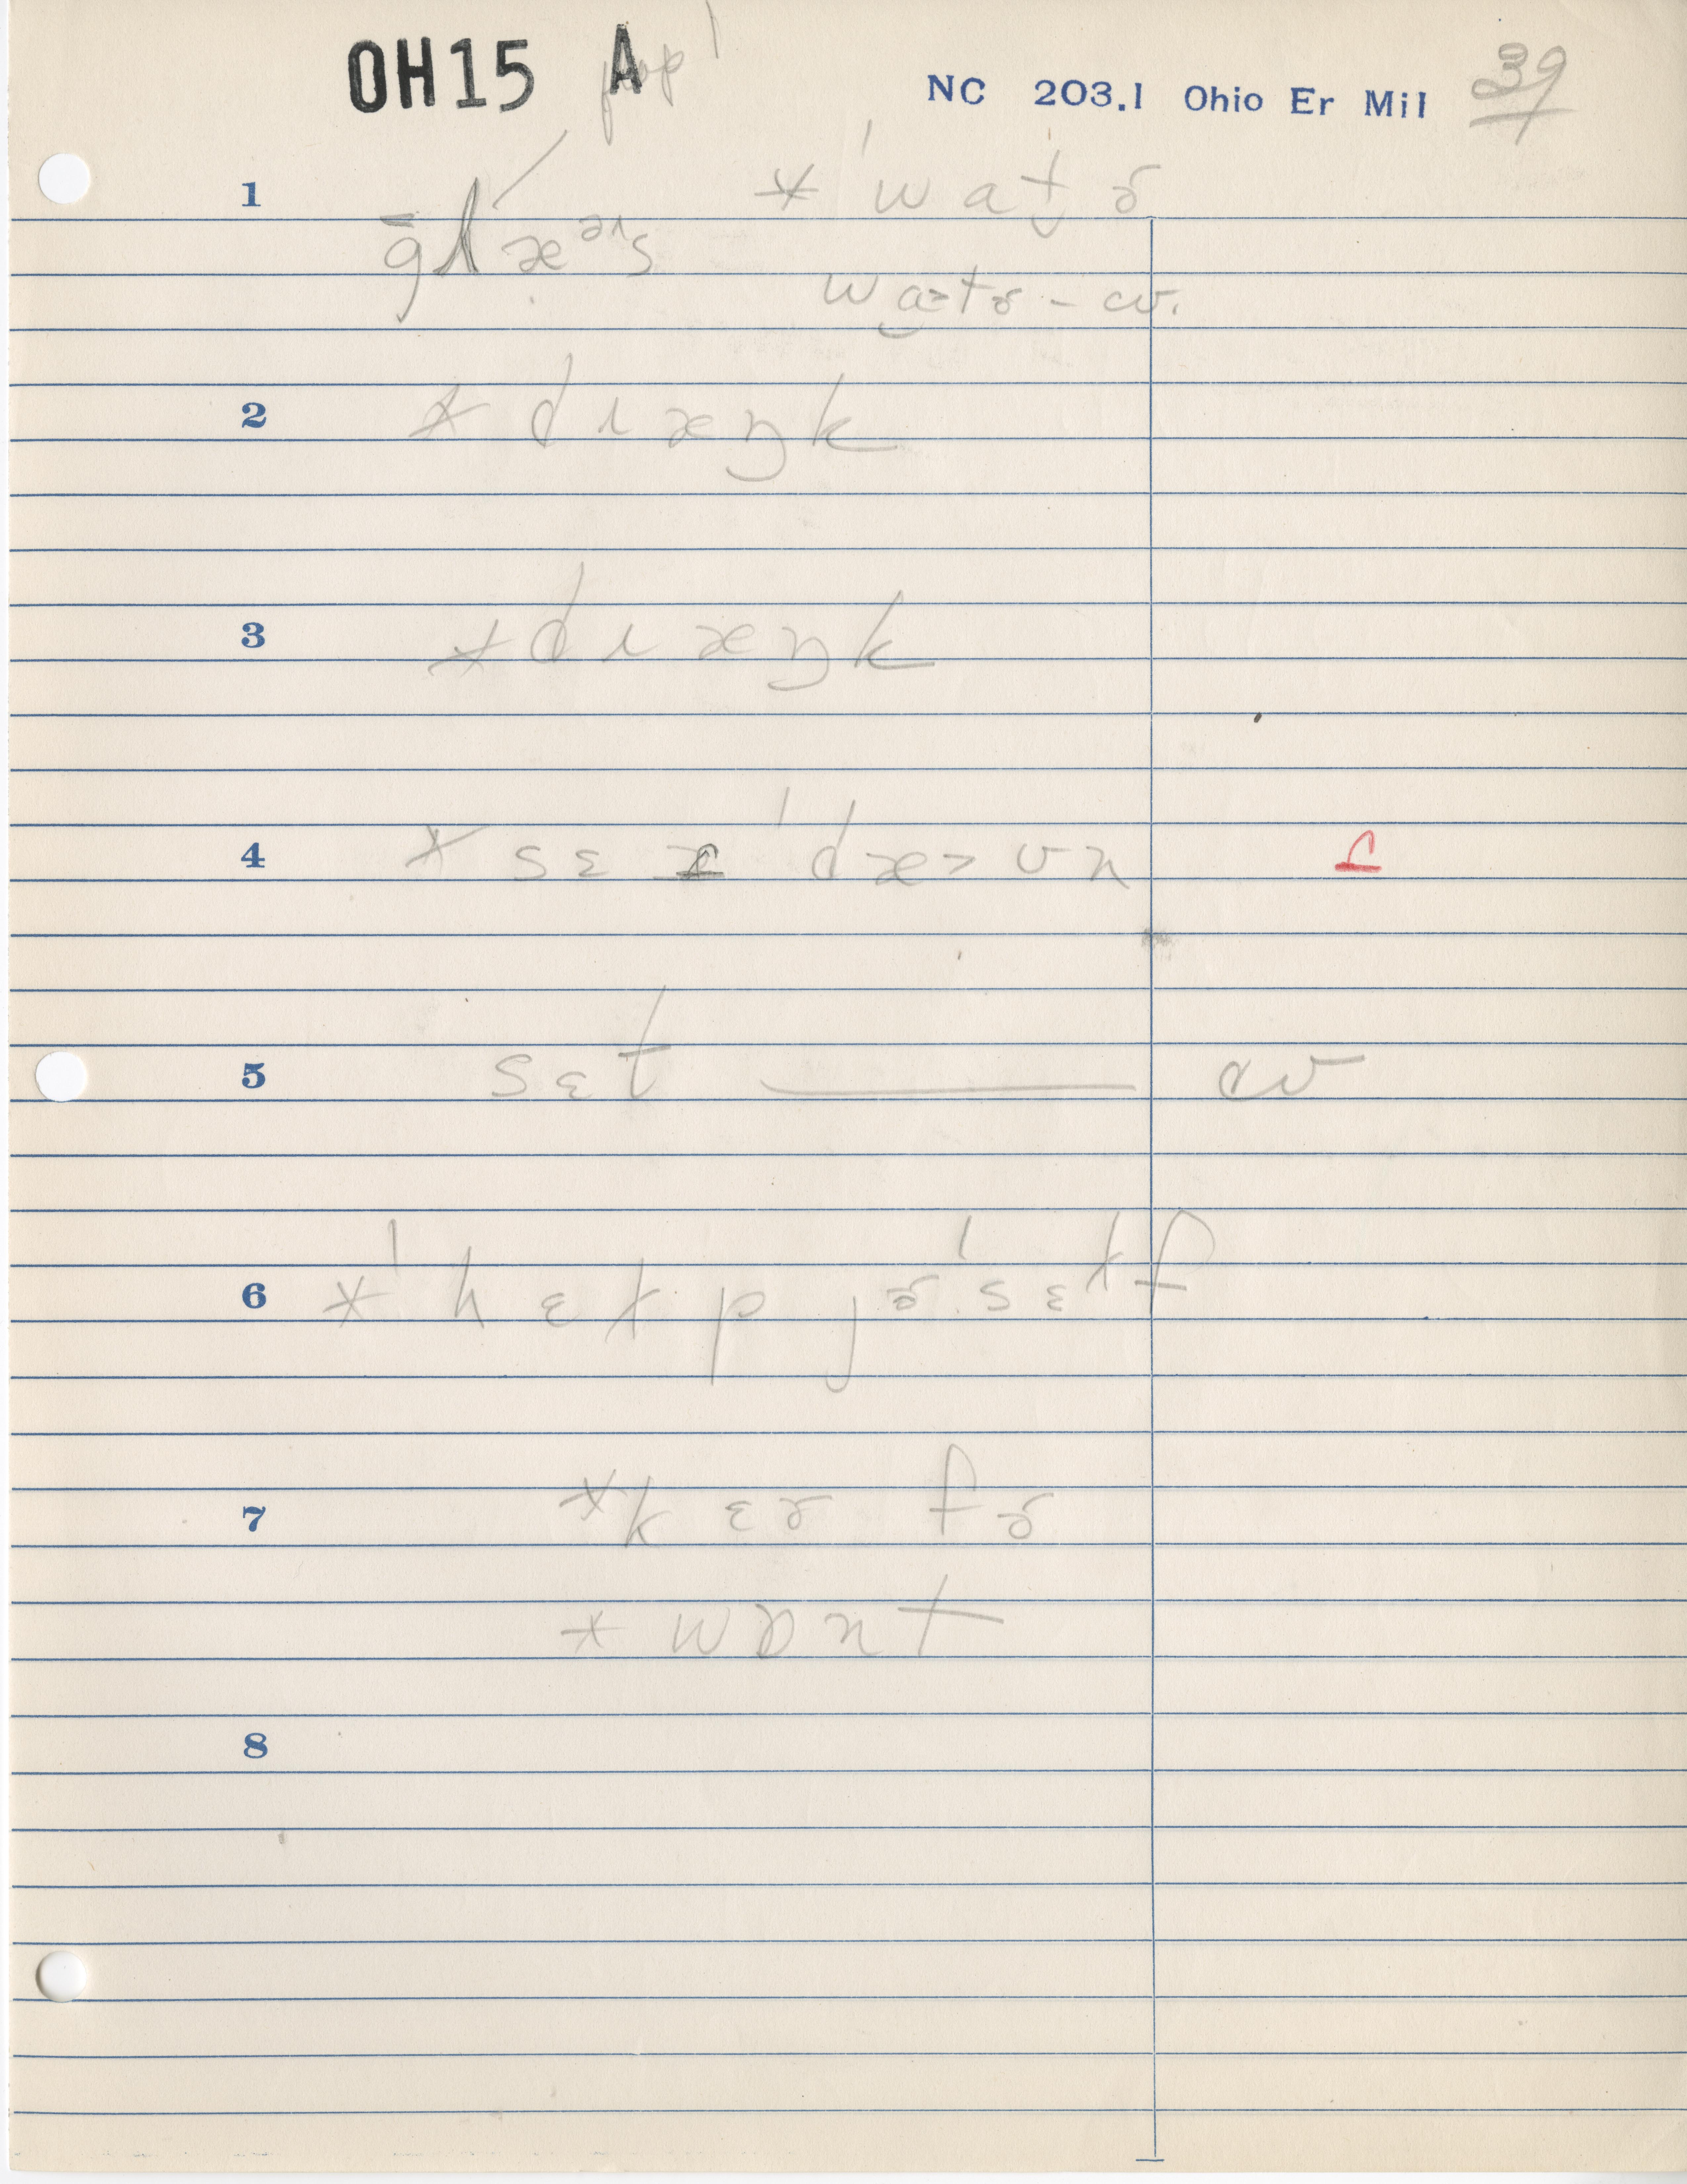 OH15 A
NC 203.1 Ohio Er Mil 39
1 * ˈwat̬ɚ
watɚ - cv.
2 * dɹæŋk
3 * dɹæŋk
4 * sɛ ɾ ˈdæ>ʊn ɾ
5 sɛt ——— cv
6 * ˈhɛɫp jɚˈsɛɫf
7 * kɛɚ fɚ
* wɒnt
8